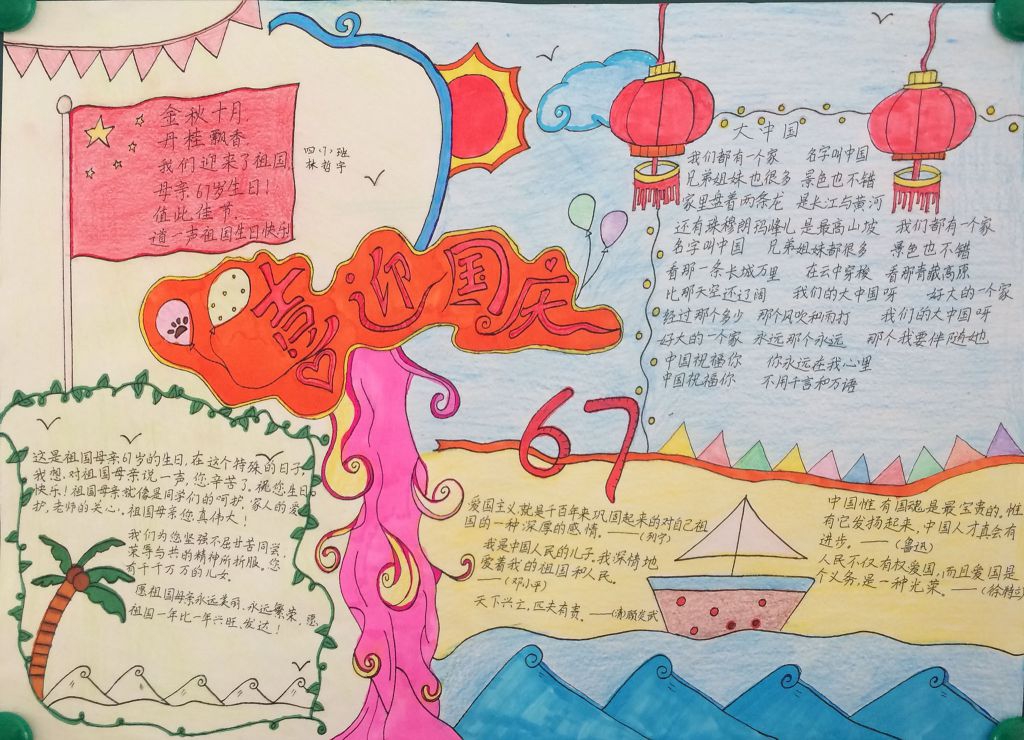 金秋十月
丹桂飘香
我们迎来了祖国
母亲67岁生日!
值此佳节,
道一声祖国生日快乐
四(小)班
林哲宇
喜迎国庆
大中国
我们都有一个家 名字叫中国
兄弟姐妹也很多 景色也不错
家里盘着两条龙 是长江与黄河
还有珠穆朗玛峰儿是最高山坡 我们都有一个家
名字叫中国 兄弟姐妹都很多 景色也不错
看那一条长城万里 在云中穿梭 看那青藏高原
比那天空还辽阔 我们的大中国呀 好大的一个家
经过那个多少 那个风吹和雨打 我们的大中国呀
好大的一个家 永远那个永远 那个我要伴随她
中国祝福你 你永远在我心里
中国祝福你 不用千言和万语
67
这是祖国母亲67岁的生日,在这个特殊的日子,
我想对祖国母亲说一声,您辛苦了,祝您生日
快乐!祖国母亲就像是同学们的呵护,家人的爱
护,老师的关心。祖国母亲您真伟大!
我们为您坚强不屈甘苦同尝,
荣辱与共的精神所折服。您
有千千万万的儿女。
愿祖国母亲永远美丽,永远繁荣,愿
祖国一年比一年兴旺、发达!
爱国主义就是千百年来巩固起来的对自己祖
国的一种深厚的感情。——(列宁)
我是中国人民的儿子,我深情地
爱着我的祖国和人民。
——(邓小平)
天下兴亡,匹夫有责。——(清)顾炎武
中国惟有国魂是最宝贵的,惟
有它发扬起来,中国人才真会有
进步。——(鲁迅)
人民不仅有权爱国,而且爱国是
个义务,是一种光荣。——(徐特立)